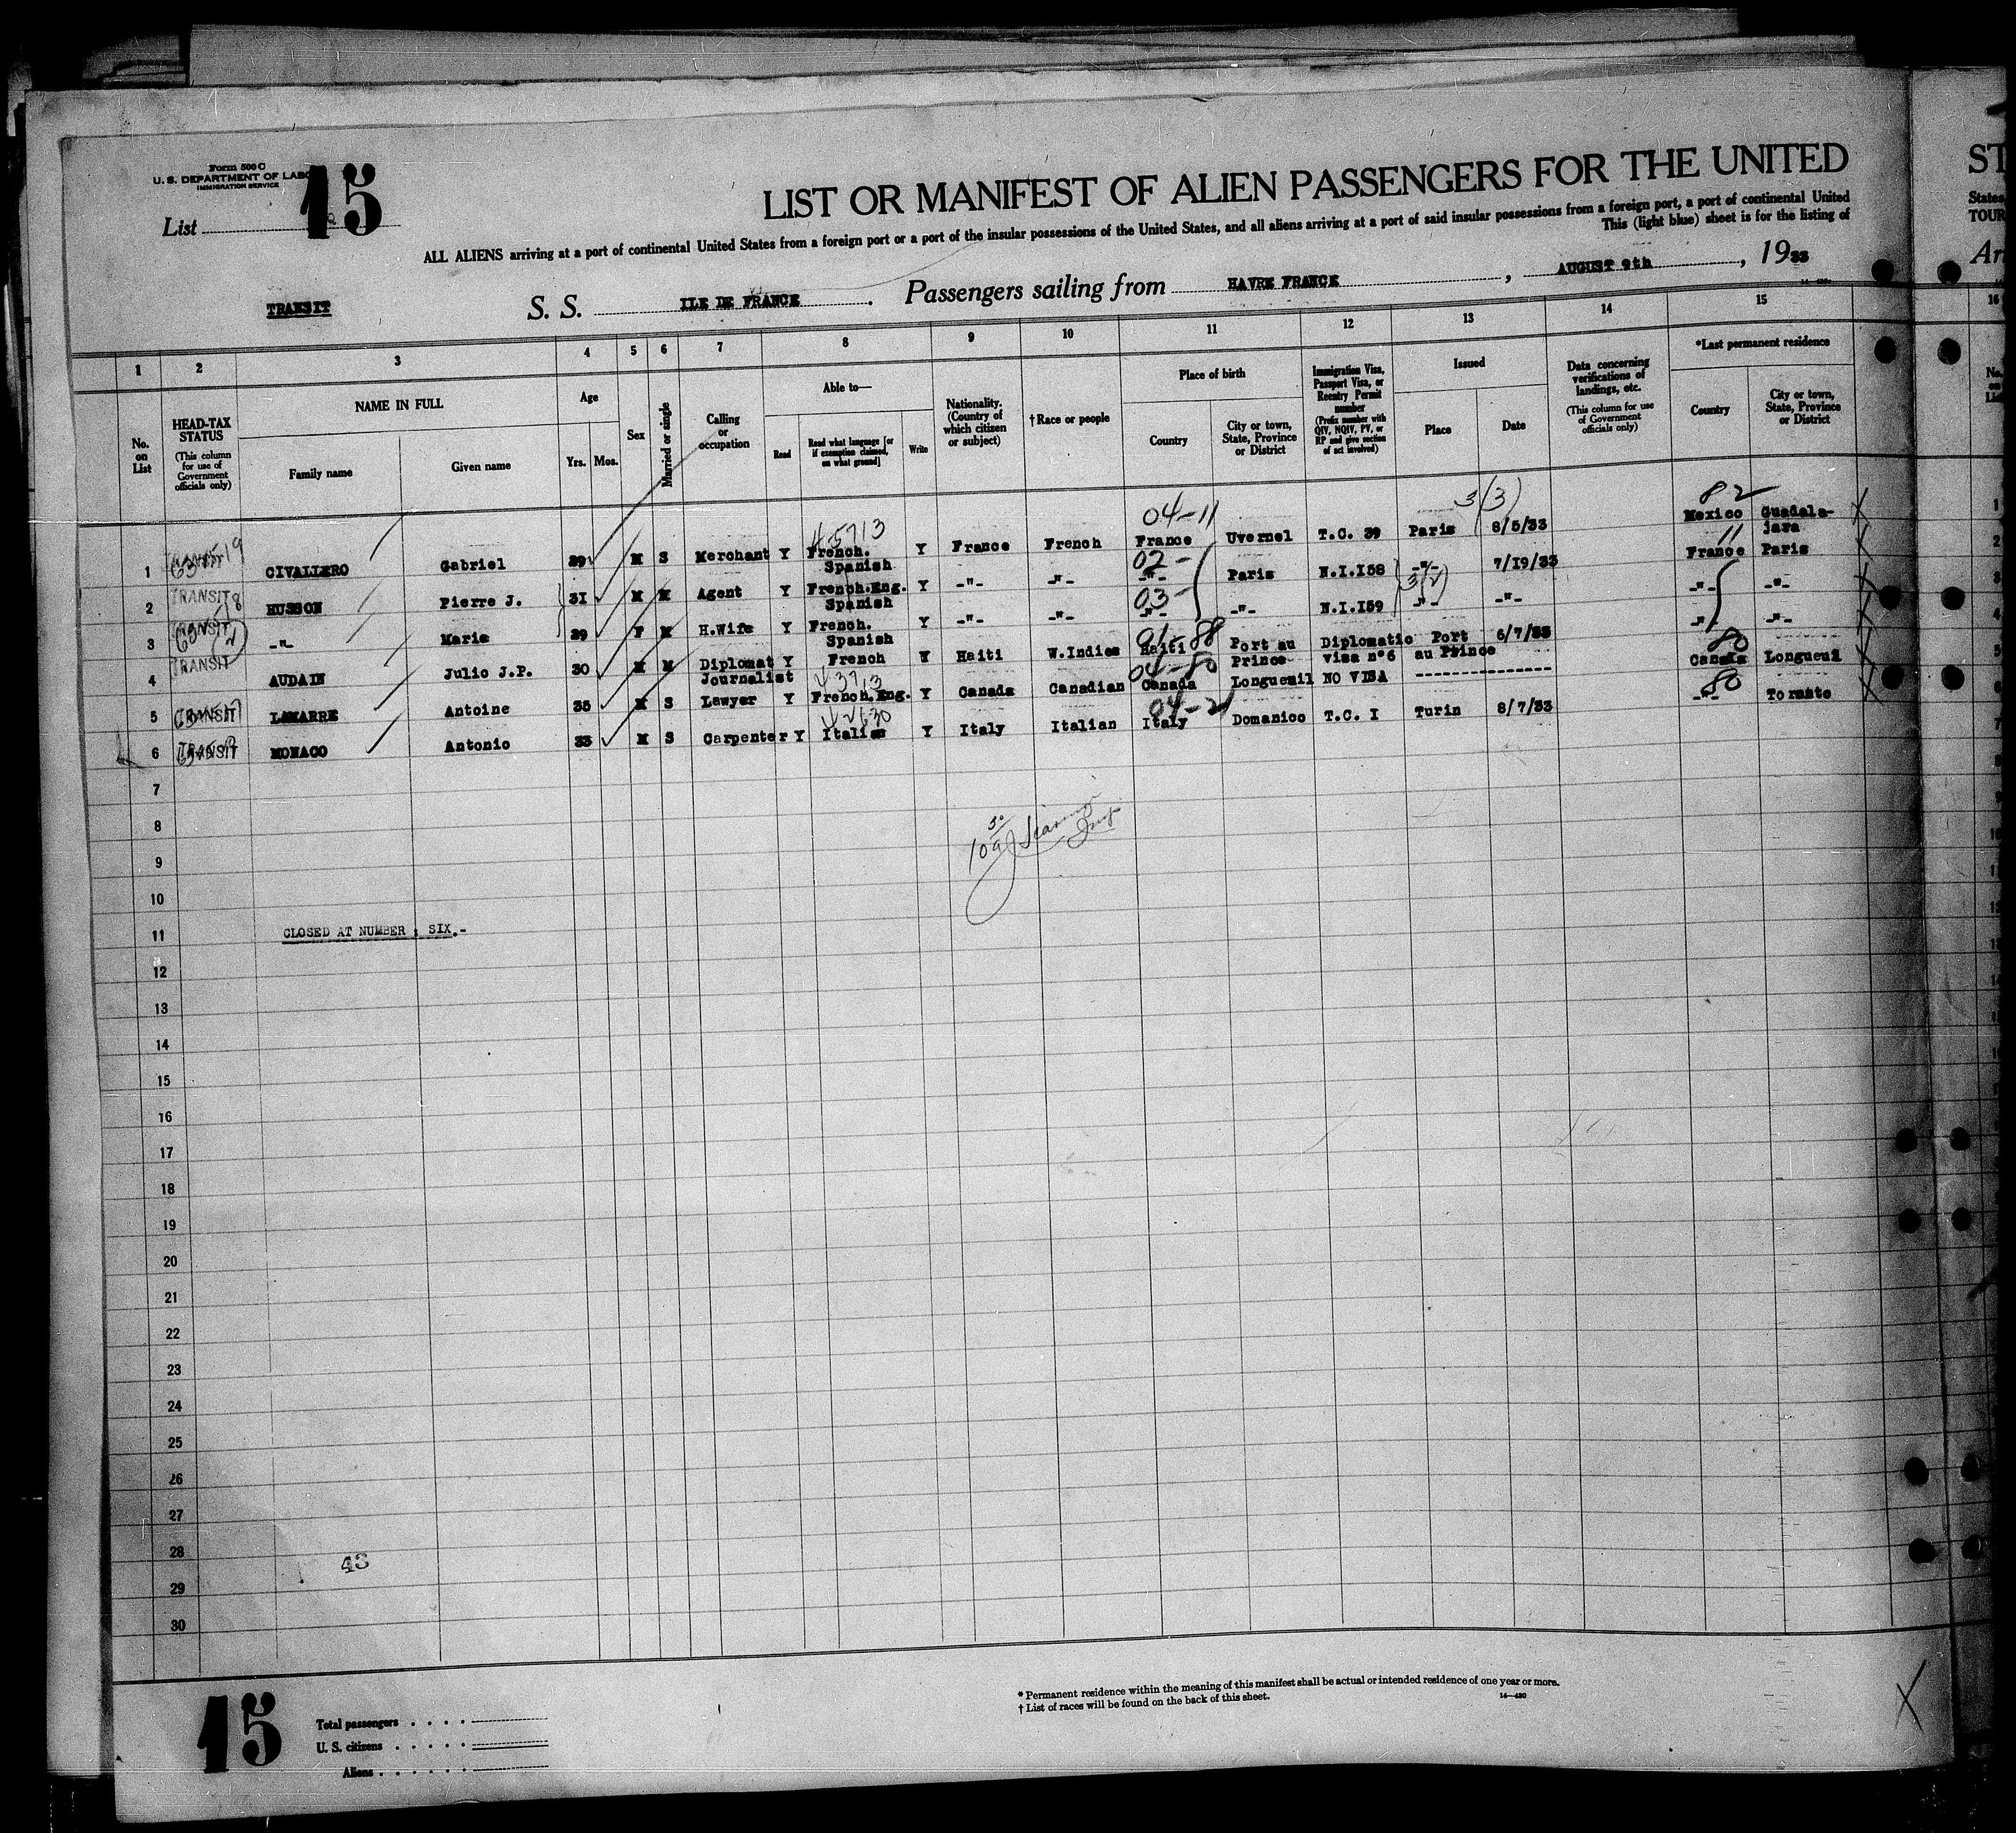 Form 500 C
U. S. DEPARTMENT OF LABO
IMMIGRATION SERVICE
List 15
LIST OR MANIFEST OF ALIEN PASSENGERS FOR THE UNITED
ST
ALL ALIENS arriving at a port of continental United States from a foreign port or a port of the insular possessions of the United States, and all aliens arriving at a port of said insular possessions from a foreign port, a port of continental United
States
This (light blue) sheet is for the listing of
TOUR
TRANSIT S. S. ILE DE FRANCE . Passengers sailing from HAVRE FRANCE , AUGUST 9th , 1933
Arr
1 2 3 4 5 6 7 8 9 10 11 12 13 14 15 16
No. on List
HEAD-TAX STATUS (This column for use of Government officials only)
NAME IN FULL
Family name Given name
Age
Yrs. Mos.
Sex
Married or single
Calling or occupation
Able to—
Read
Read what language [or if exemption claimed, on what ground]
Write
Nationality. (Country of which citizen or subject)
†Race or people
Place of birth
Country
City or town, State, Province or District
Immigration Visa, Passport Visa, or Reentry Permit number (Prefix number with QIV, NQIV, PV, or RP and give section of act involved)
Issued
Place Date
Data concerning verifications of landings, etc. (This column for use of Government officials only)
*Last permanent residence
Country
City or town, State, Province or District
4-5713 04-11 3(3) 82
1 TRANSIT CIVALLERO Gabriel 29 M S Merchant Y French. Spanish Y France French France Uvernel T.C. 39 Paris 8/5/33 Mexico Guadalajara
02- 11
2 TRANSIT HUSSON Pierre J. 31 M M Agent Y French.Eng. Spanish Y -"- -"- -"- Paris N.I.158 -"- 7/19/33 France Paris
03- 3(2)
3 TRANSIT -"- Marie 29 F M H.Wife Y French. Spanish Y -"- -"- -"- -"- N.I.159 -"- -"- -"- -"-
01-88
4 TRANSIT AUDAIN Julio J.P. 30 M M Diplomat Journalist Y French Y Haiti W.Indies Haiti Port au Prince Diplomatic visa n°6 Port au Prince 6/7/33 -"- -"-
3713 04-80 80
5 TRANSIT LAMARRE Antoine 35 M S Lawyer Y French.Eng. Y Canada Canadian Canada Longueuil NO VISA -------------- Canada Longueuil
2630 04-21 80
6 TRANSIT MONACO Antonio 33 M S Carpenter Y Italian Y Italy Italian Italy Domanico T.C. I Turin 8/7/33 -"- Toronto
7
8
9
10
11 CLOSED AT NUMBER : SIX.-
12
13
14
15
16
17
18
19
20
21
22
23
24
25
26
27
28 43
29
30
* Permanent residence within the meaning of this manifest shall be actual or intended residence of one year or more.
† List of races will be found on the back of this sheet.
14—430
15
Total passengers
U. S. citizens
Aliens
X